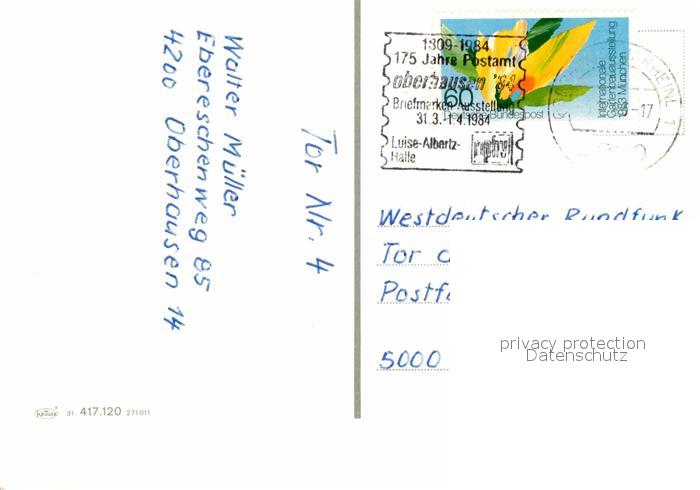 Walter Müller
Ebereschenweg 85
4200 Oberhausen 14
Tor Nr. 4
1809-1984
175 Jahre Postamt
oberhausen '84
Briefmarken-Ausstellung
31.3.-1.4.1984
Luise-Albertz-
Halle
60
Deutsche Bundespost
Internationale
Gartenbauausstellung
1983 München
RHEINL 1
-17
Westdeutscher Rundfunk
Tor
Postf
5000
privacy protection
Datenschutz
Krüger
31. 417.120 271011